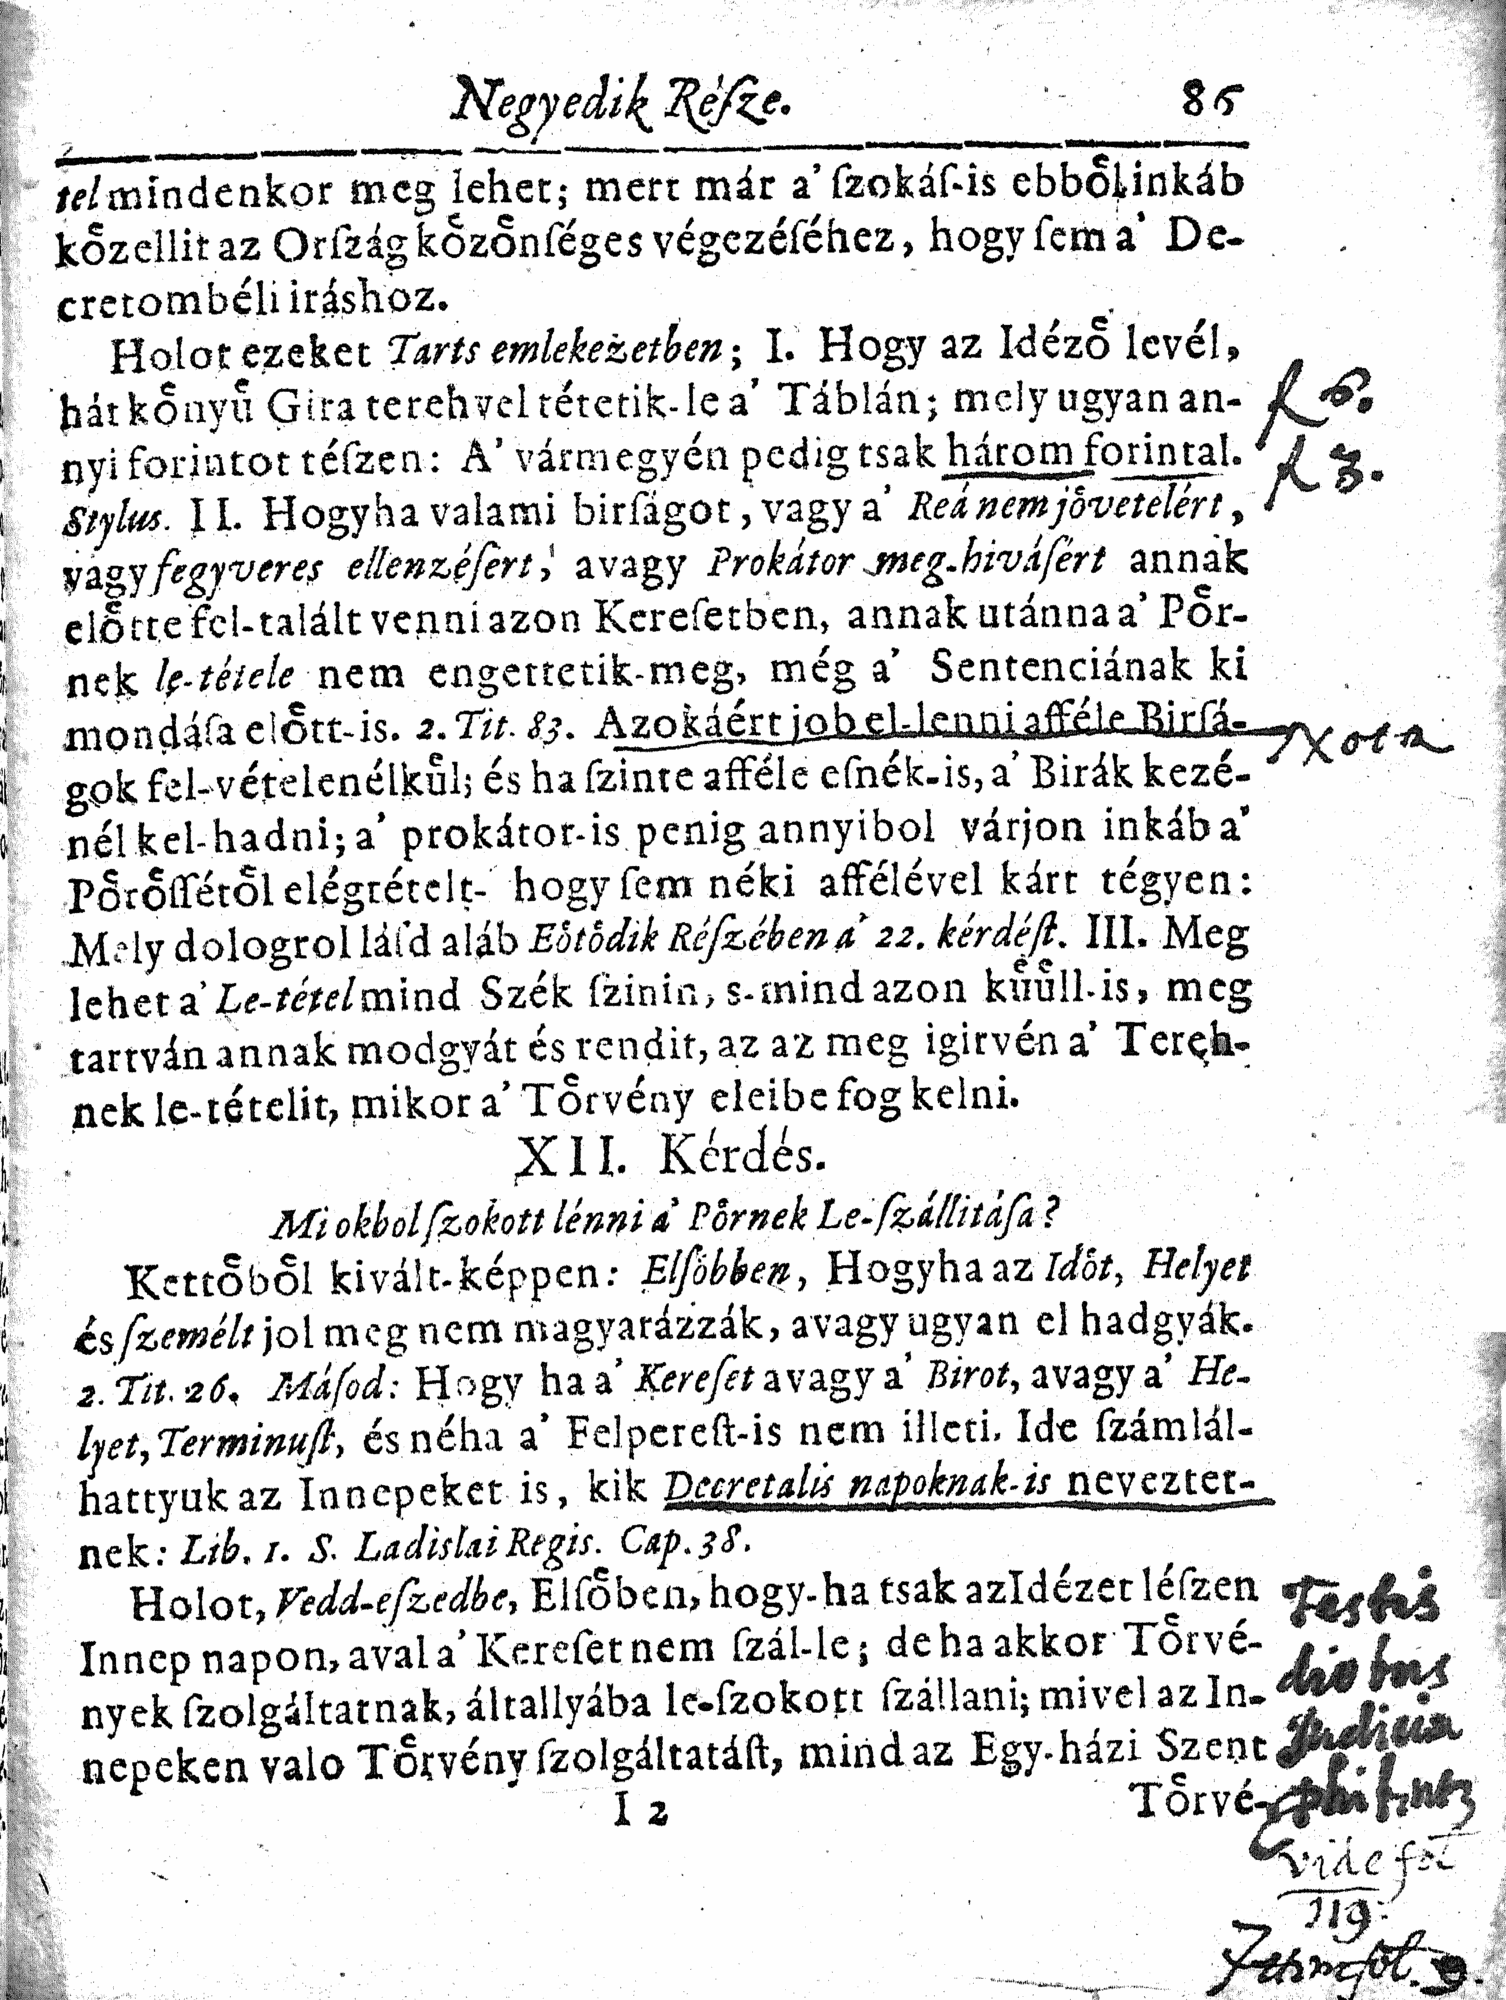 Negyedik Réſze. 86
tel mindenkor meg lehet; mert már a' ſzokáſ-is ebbőlinkáb
kőzellit az Orſzág kőzőnſéges végezéſéhez, hogy ſem a' De-
cretombéli iráshoz.
Holot ezeket Tarts emlekezetben; I. Hogy az Idéző levél,
hát kőnyű Gira terehvel tétetik-le a' Táblán; mely ugyan an-
nyi forintot téſzen: A' vármegyén pedig tsak három forintal.
Stylus. II. Hogyha valami birſágot, vagy a' Reá nem jővetelért,
vagy fegyveres ellenzéſert, avagy Prokátor meg-hiváſért annak
előtte fel-talált venni azon Kereſetben, annak utánna a' Pőr-
nek le-tétele nem engettetik-meg, még a' Sentenciának ki
mondáſa előtt-is. 2. Tit. 83. Azokáért job el-lenni afféle Birſá-
gok fel-vételenélkűl; és ha ſzinte afféle eſnék-is, a' Birák kezé-
nél kel-hadni; a' prokátor-is penig annyibol várjon inkáb a'
Pőrőſſétől elégtételt- hogy ſem néki affélével kárt tégyen:
Mely dologrol láſd aláb Eőtődik Réſzében a' 22. kérdéſt. III. Meg
lehet a' Le-tétel mind Szék ſzinin, s-mind azon kűűll-is, meg
tartván annak modgyát és rendit, az az meg igirvén a' Tereh-
nek le-tételit, mikor a' Tőrvény eleibe fog kelni.
XII. Kérdés.
Mi okbol ſzokott lénni a' Pőrnek Le-ſzállitáſa?
Kettőből kivált-képpen: Elſőbben, Hogyha az Időt, Helyet
és ſzemélt jol meg nem magyarázzák, avagy ugyan el hadgyák.
2. Tit. 26. Máſod: Hogy ha a' Kereſet avagy a' Birot, avagy a' He-
lyet, Terminuſt, és néha a' Felpereſt-is nem illeti. Ide ſzámlál-
hattyuk az Innepeket is, kik Decretalis napoknak-is neveztet-
nek: Lib. 1. S. Ladislai Regis. Cap. 38.
Holot, Vedd-eſzedbe, Elſőben, hogy-ha tsak azIdézet léſzen
Innep napon, aval a' Kereſet nem ſzál-le; de ha akkor Tőrvé-
nyek ſzolgáltatnak, általlyába le-ſzokott ſzállani; mivel az In-
nepeken valo Tőrvény ſzolgáltatáſt, mind az Egy-házi Szent
I 2 Tőrvé-
f 6.
f 3.
Nota
Festis
diebus
Judicia
vide fol
119
fol. 9.